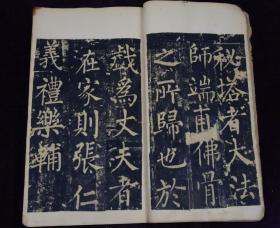 秘塔者大法
師端甫佛骨
之所歸也於
戲為丈夫者
在家則張仁
義禮樂輔